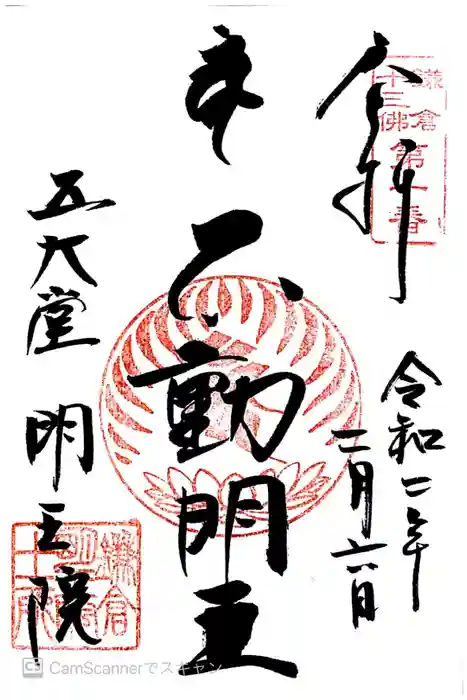 鎌倉
十三佛
第一番
奉拝
令和二年
二月六日
不動明王
五大堂
明王院
CS CamScannerでスキャン